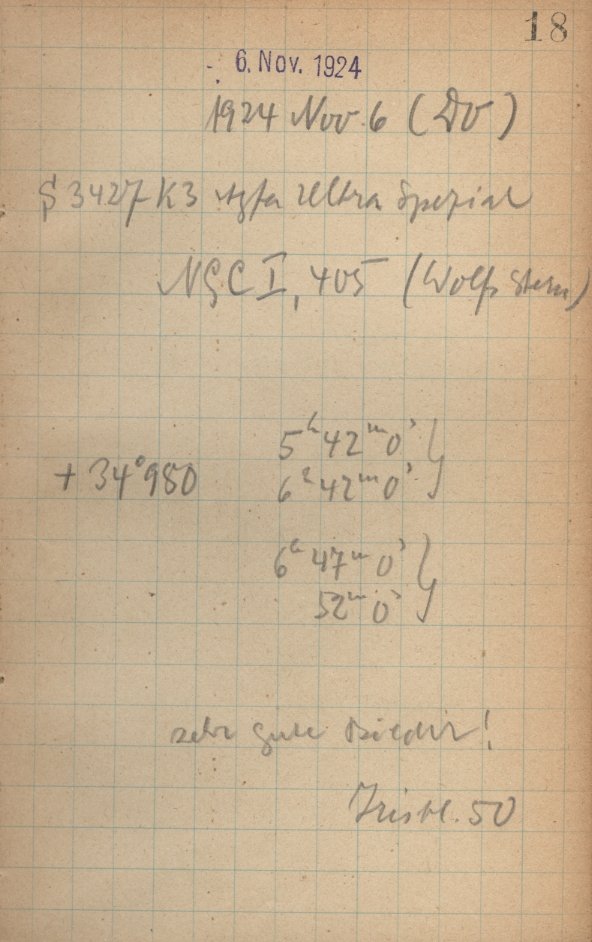 18
6. Nov. 1924
1924 Nov. 6 (Do)
3427 K3 Agfa Ultra Spezial
NGC I, 405 (Wolfs Stern)
5ʰ 42ᵐ 0ˢ }
+ 34° 980
6ʰ 42ᵐ 0ˢ
6ʰ 47ᵐ 0ˢ }
52ᵐ 0ˢ
sehr gute Bilder!
Irisbl. 50